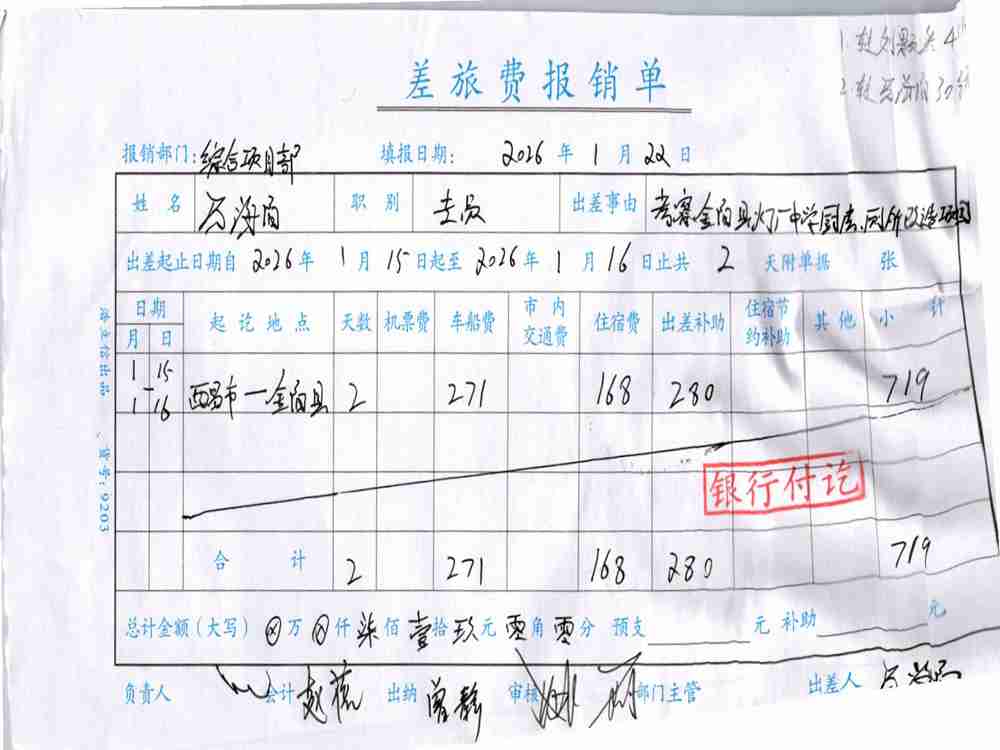 差旅费报销单
报销部门:综合项目部 填报日期: 2026年1月22日
姓名 职别 出差事由 考察金阳县
出差起止日期自2026年1月15日起至2026年1月16日止共2天附单据 张
日期 起讫地点 天数 机票费 车船费 市内交通费 住宿费 出差补助 住宿节约补助 其他 小计
月 日
1 15 - 1 16 西昌市—金阳县 2 271 168 280 719
银行付讫
合计 2 271 168 280 719
总计金额(大写) ⊗万⊗仟柒佰壹拾玖元零角零分 预支 元 补助 元
负责人 会计 出纳 曾静 审核 部门主管 出差人
货号:9203